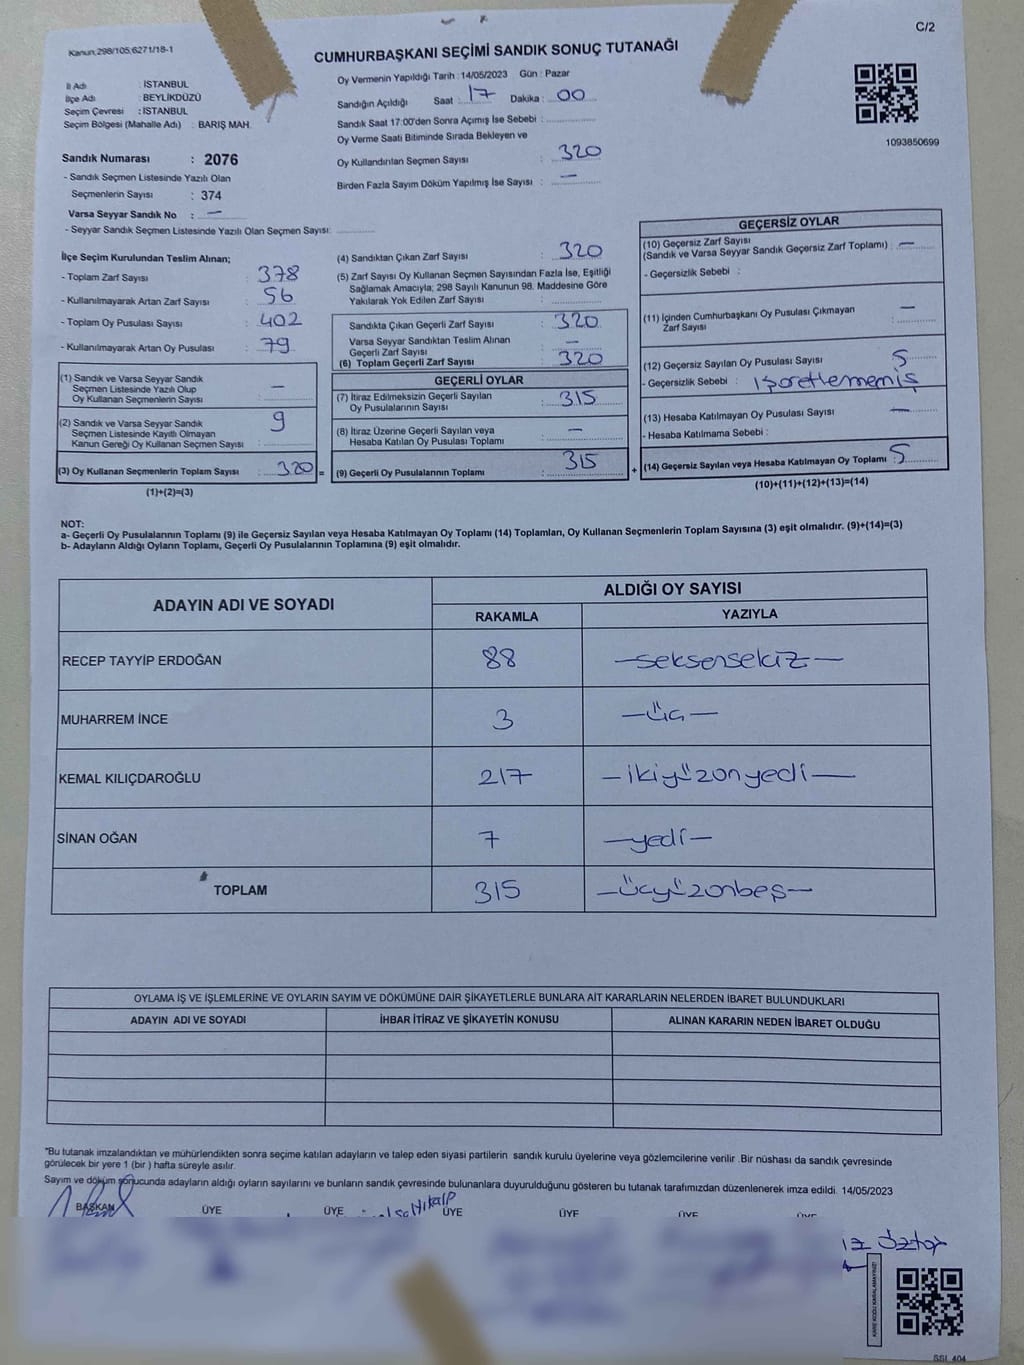 Kanun;298/105;6271/18-1
C/2
CUMHURBAŞKANI SEÇİMİ SANDIK SONUÇ TUTANAĞI
İl Adı : İSTANBUL
İlçe Adı : BEYLİKDÜZÜ
Seçim Çevresi : İSTANBUL
Seçim Bölgesi (Mahalle Adı) : BARIŞ MAH.
Oy Vermenin Yapıldığı Tarih : 14/05/2023 Gün : Pazar
Sandığın Açıldığı Saat : 17 Dakika : 00
Sandık Saat 17:00'den Sonra Açımış İse Sebebi :
Oy Verme Saati Bitiminde Sırada Bekleyen ve
Oy Kullandırılan Seçmen Sayısı : 320
Birden Fazla Sayım Döküm Yapılmış İse Sayısı : —
1093850699
Sandık Numarası : 2076
- Sandık Seçmen Listesinde Yazılı Olan
Seçmenlerin Sayısı : 374
Varsa Seyyar Sandık No : —
- Seyyar Sandık Seçmen Listesinde Yazılı Olan Seçmen Sayısı:
İlçe Seçim Kurulundan Teslim Alınan;
- Toplam Zarf Sayısı : 378
- Kullanılmayarak Artan Zarf Sayısı : 56
- Toplam Oy Pusulası Sayısı : 402
- Kullanılmayarak Artan Oy Pusulası : 79
(1) Sandık ve Varsa Seyyar Sandık
Seçmen Listesinde Yazılı Olup
Oy Kullanan Seçmenlerin Sayısı : —
(2) Sandık ve Varsa Seyyar Sandık
Seçmen Listesinde Kayıtlı Olmayan
Kanun Gereği Oy Kullanan Seçmen Sayısı : 9
(3) Oy Kullanan Seçmenlerin Toplam Sayısı : 320 =
(1)+(2)=(3)
(4) Sandıktan Çıkan Zarf Sayısı : 320
(5) Zarf Sayısı Oy Kullanan Seçmen Sayısından Fazla İse, Eşitliği
Sağlamak Amacıyla; 298 Sayılı Kanunun 98. Maddesine Göre
Yakılarak Yok Edilen Zarf Sayısı :
Sandıkta Çıkan Geçerli Zarf Sayısı : 320
Varsa Seyyar Sandıktan Teslim Alınan
Geçerli Zarf Sayısı : —
(6) Toplam Geçerli Zarf Sayısı : 320
GEÇERLİ OYLAR
(7) İtiraz Edilmeksizin Geçerli Sayılan
Oy Pusulalarının Sayısı : 315
(8) İtiraz Üzerine Geçerli Sayılan veya
Hesaba Katılan Oy Pusulası Toplamı : —
(9) Geçerli Oy Pusulalarının Toplamı : 315 +
GEÇERSİZ OYLAR
(10) Geçersiz Zarf Sayısı
(Sandık ve Varsa Seyyar Sandık Geçersiz Zarf Toplamı) : —
- Geçersizlik Sebebi :
(11) İçinden Cumhurbaşkanı Oy Pusulası Çıkmayan
Zarf Sayısı : —
(12) Geçersiz Sayılan Oy Pusulası Sayısı : 5
- Geçersizlik Sebebi : işaretlememiş
(13) Hesaba Katılmayan Oy Pusulası Sayısı : —
- Hesaba Katılmama Sebebi :
(14) Geçersiz Sayılan veya Hesaba Katılmayan Oy Toplamı : 5
(10)+(11)+(12)+(13)=(14)
NOT:
a- Geçerli Oy Pusulalarının Toplamı (9) ile Geçersiz Sayılan veya Hesaba Katılmayan Oy Toplamı (14) Toplamları, Oy Kullanan Seçmenlerin Toplam Sayısına (3) eşit olmalıdır. (9)+(14)=(3)
b- Adayların Aldığı Oyların Toplamı, Geçerli Oy Pusulalarının Toplamına (9) eşit olmalıdır.
ADAYIN ADI VE SOYADI
ALDIĞI OY SAYISI
RAKAMLA YAZIYLA
RECEP TAYYİP ERDOĞAN 88 —seksensekiz—
MUHARREM İNCE 3 —üç—
KEMAL KILIÇDAROĞLU 217 —ikiyüzonyedi—
SİNAN OĞAN 7 —yedi—
TOPLAM 315 —üçyüzonbeş—
OYLAMA İŞ VE İŞLEMLERİNE VE OYLARIN SAYIM VE DÖKÜMÜNE DAİR ŞİKAYETLERLE BUNLARA AİT KARARLARIN NELERDEN İBARET BULUNDUKLARI
ADAYIN ADI VE SOYADI İHBAR İTİRAZ VE ŞİKAYETİN KONUSU ALINAN KARARIN NEDEN İBARET OLDUĞU
"Bu tutanak imzalandıktan ve mühürlendikten sonra seçime katılan adayların ve talep eden siyasi partilerin sandık kurulu üyelerine veya gözlemcilerine verilir .Bir nüshası da sandık çevresinde
görülecek bir yere 1 (bir ) hafta süreyle asılır.
Sayım ve döküm sonucunda adayların aldığı oyların sayılarını ve bunların sandık çevresinde bulunanlara duyurulduğunu gösteren bu tutanak tarafımızdan düzenlenerek imza edildi. 14/05/2023
BAŞKAN ÜYE ÜYE ÜYE ÜYE ÜYE ÜYE
KARE KODU KARALAMAYINIZ!
SSL 404